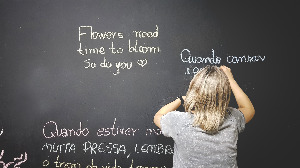 Flowers need
time to bloom
So do you ♡
Quando cansar
Quando estiver com
MUITA PRESSA, LEMBRE
o trem da vida